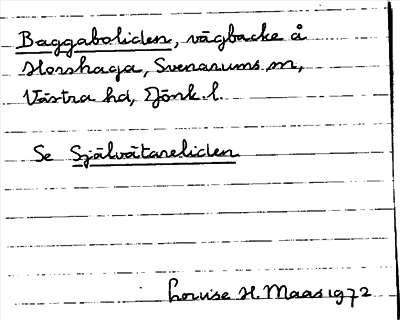 Baggaboliden, vägbacke å
Horshaga, Svenarums sn,
Västra hd, Jönk. l.
Se Självätareliden
Louise H. Maas 1972